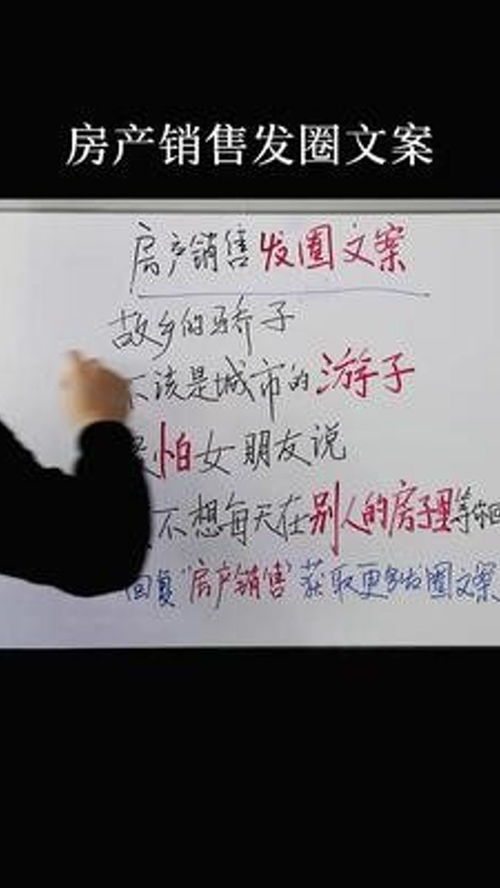 房产销售发圈文案
房产销售发圈文案
故乡的骄子
不该是城市的游子
怕女朋友说
不想每天在别人的房子里等你回
回复“房产销售”获取更多发圈文案